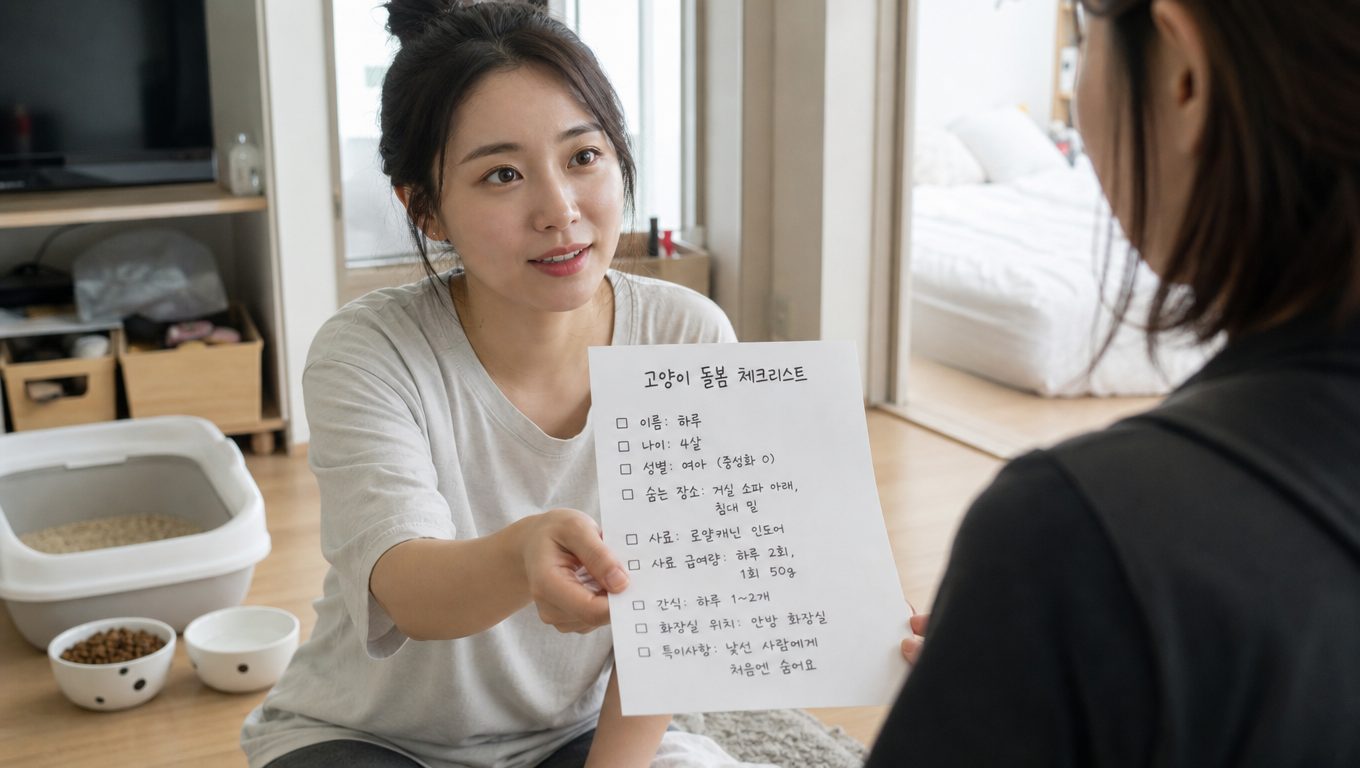 고양이 돌봄 체크리스트
☐ 이름: 하루
☐ 나이: 4살
☐ 성별: 여아 (중성화 O)
☐ 숨는 장소: 거실 소파 아래,
침대 밑
☐ 사료: 로얄캐닌 인도어
☐ 사료 급여량: 하루 2회,
1회 50g
☐ 간식: 하루 1~2개
☐ 화장실 위치: 안방 화장실
☐ 특이사항: 낯선 사람에게
처음엔 숨어요